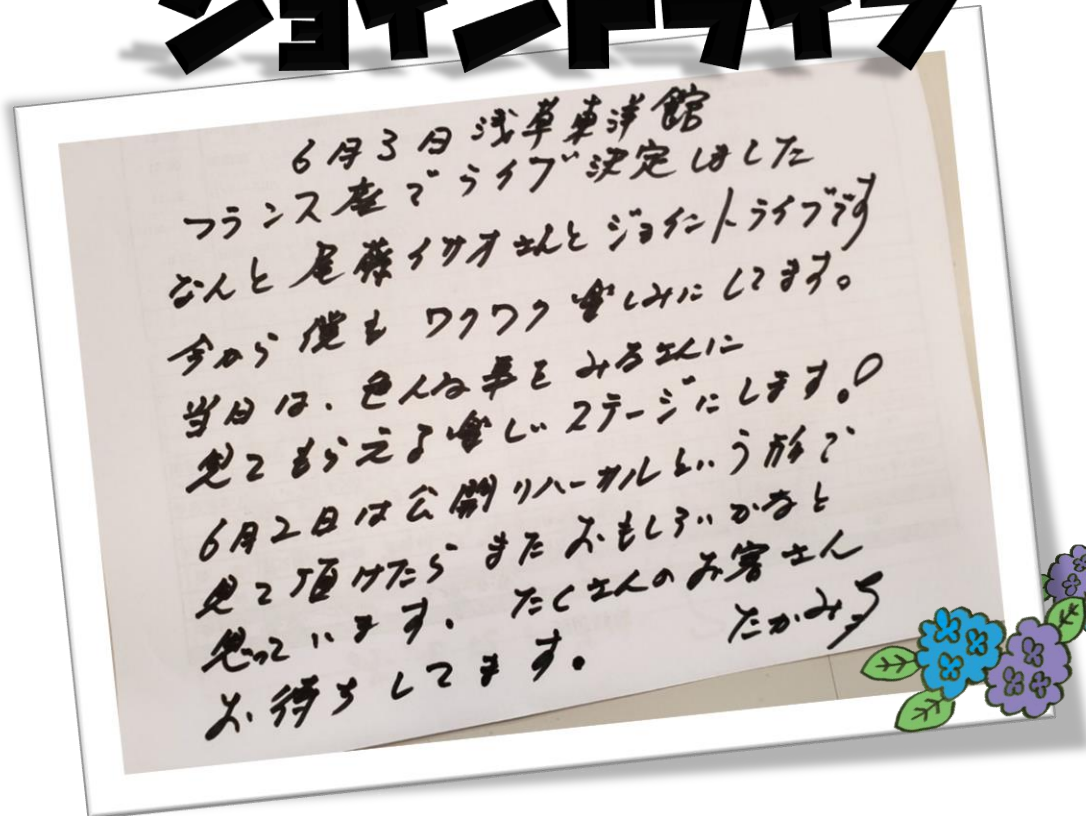 ジョイントライブ
6月3日浅草東洋館
フランス座でライブ決定しました
なんと尾藤イサオさんとジョイントライブです
今から僕もワクワク楽しみにしてます。
当日は、色んな事をみなさんに
見てもらえる楽しいステージにします。!
6月2日は公開リハーサルという形で
見て頂けたらまたおもしろいかなと
思っています。たくさんのお客さん
お待ちしてます。 たかみち